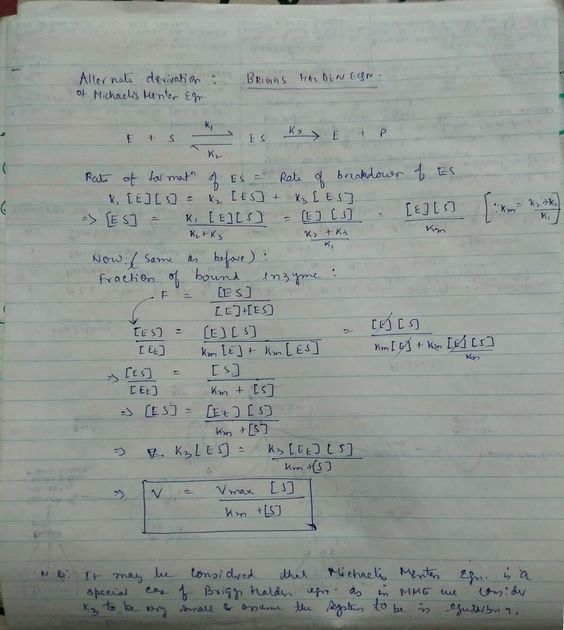 Alternate derivation : BRIGGS HALDEN EQN.
of Michaelis Menten Eqn.
E + S ⇌ ES → E + P
K1 K2 K3
Rate of formatn of ES = Rate of breakdown of ES
K1 [E][S] = K2 [ES] + K3 [ES]
=> [ES] = K1 [E][S] / K2+K3 = [E][S] / (K2+K3 / K1) = [E][S] / Km [∵ Km = K2+K3 / K1]
Now: (Same as before) :
Fraction of bound enzyme :
F = [ES] / [E]+[ES]
[ES] / [Et] = [E][S] / Km[E] + Km[ES] = [E][S] / Km[E] + Km [E][S] / Km
=> [ES] / [Et] = [S] / Km + [S]
=> [ES] = [Et][S] / Km+[S]
=> K3[ES] = K3[Et][S] / Km+[S]
=> V = Vmax [S] / Km +[S]
N.B: It may be considered that Michaelis Menten Eqn. is a
special case of Briggs Halden eqn. as in MME we consider
K3 to be very small & assume the system to be in